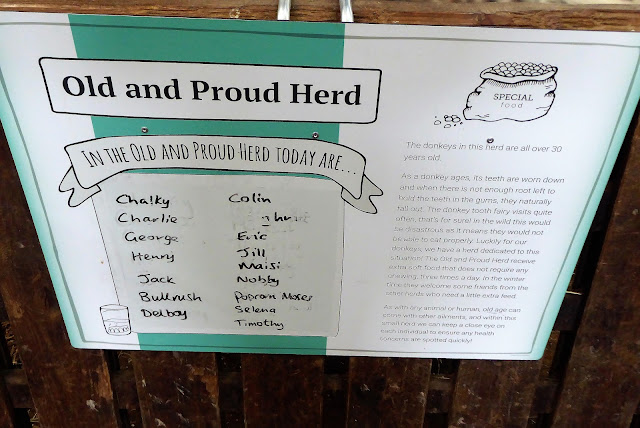 Old and Proud Herd
IN THE OLD AND PROUD HERD TODAY ARE...
Chalky
Charlie
George
Henry
Jack
Bullrush
Delboy
Colin
Eric
Jill
Maisi
Nobby
Popcorn Moses
Selena
Timothy
SPECIAL
food
The donkeys in this herd are all over 30
years old.
As a donkey ages, its teeth are worn down
and when there is not enough root left to
hold the teeth in the gums, they naturally
fall out. The donkey tooth fairy visits quite
often, that's for sure! In the wild this would
be disastrous as it means they would not
be able to eat properly. Luckily for our
donkeys, we have a herd dedicated to this
situation! The Old and Proud Herd receive
extra soft food that does not require any
chewing, three times a day. In the winter
time they welcome some friends from the
other herds who need a little extra feed.
As with any animal or human, old age can
come with other ailments, and within this
small herd we can keep a close eye on
each individual to ensure any health
concerns are spotted quickly!